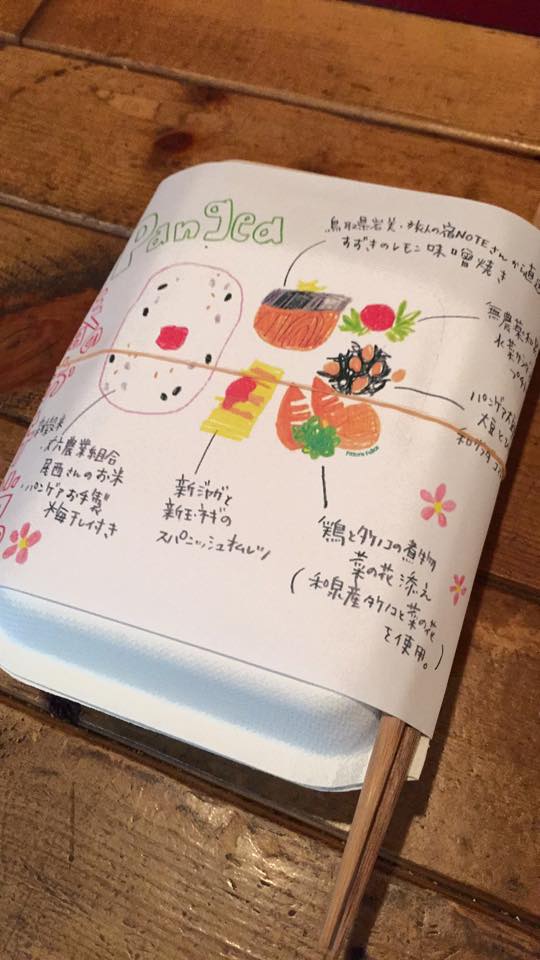 Pangea
鳥取県岩美・旅人の宿NOTEさんから直送
すずきのレモン味噌焼き
無農薬
水菜
パンゲア
大豆とひ
雑穀米
農業組合
尾西さんのお米
・パンゲアお手製
梅干し付き
新ジャガと
新玉ネギの
スパニッシュオムレツ
鶏とタケノコの煮物
菜の花添え
(和泉産タケノコと菜の花
を使用。)